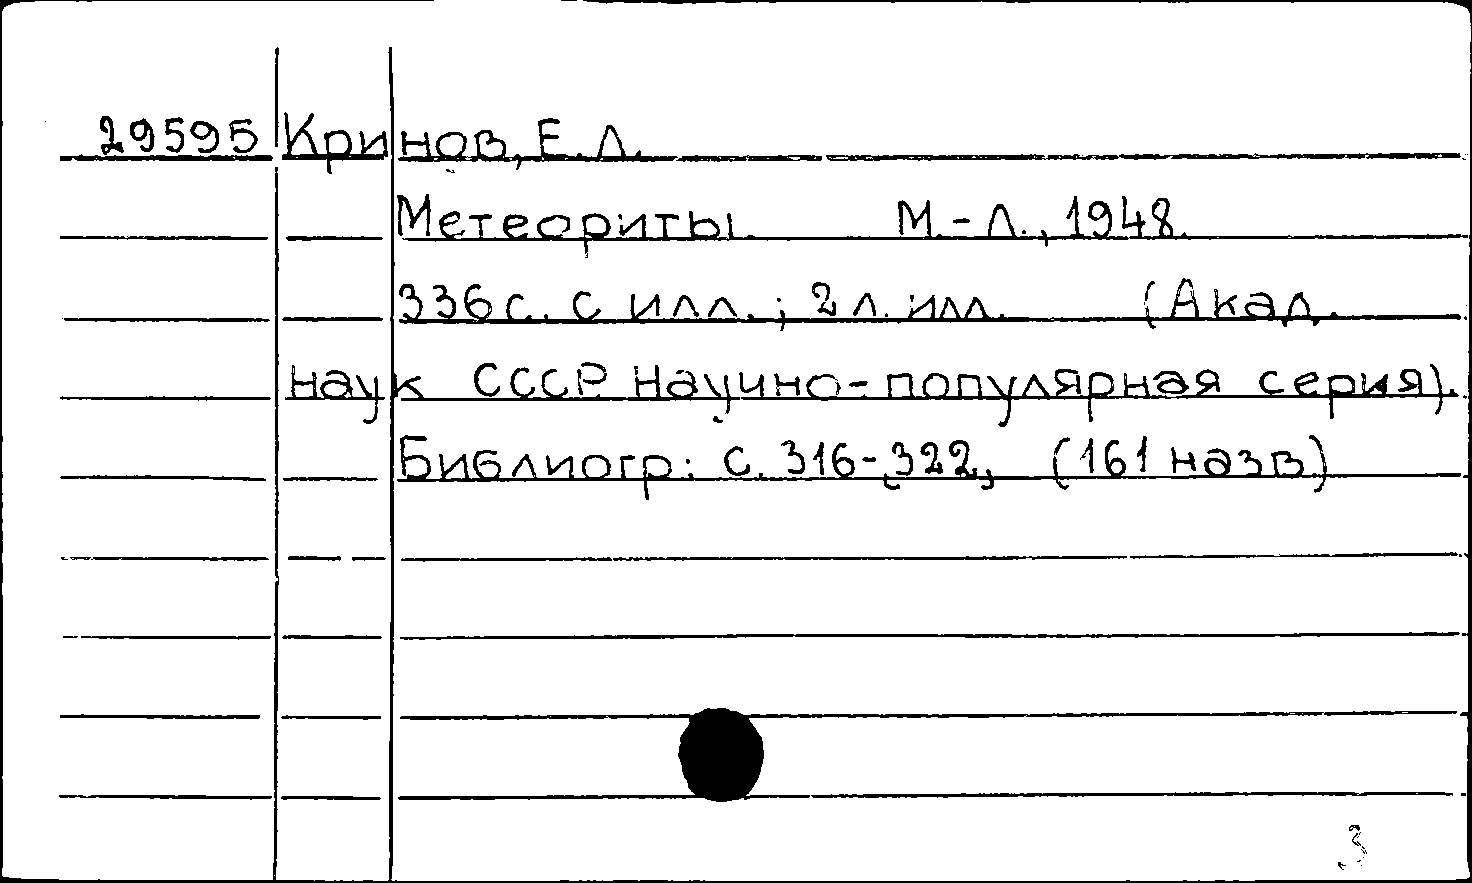 29595 Кринов, Е. Л.
Метеориты. М.-Л., 1948.
336 с. с илл.; 2 л. илл. (Акад.
наук СССР. Научно-популярная серия).
Библиогр: с. 316-322, (161 назв)
3